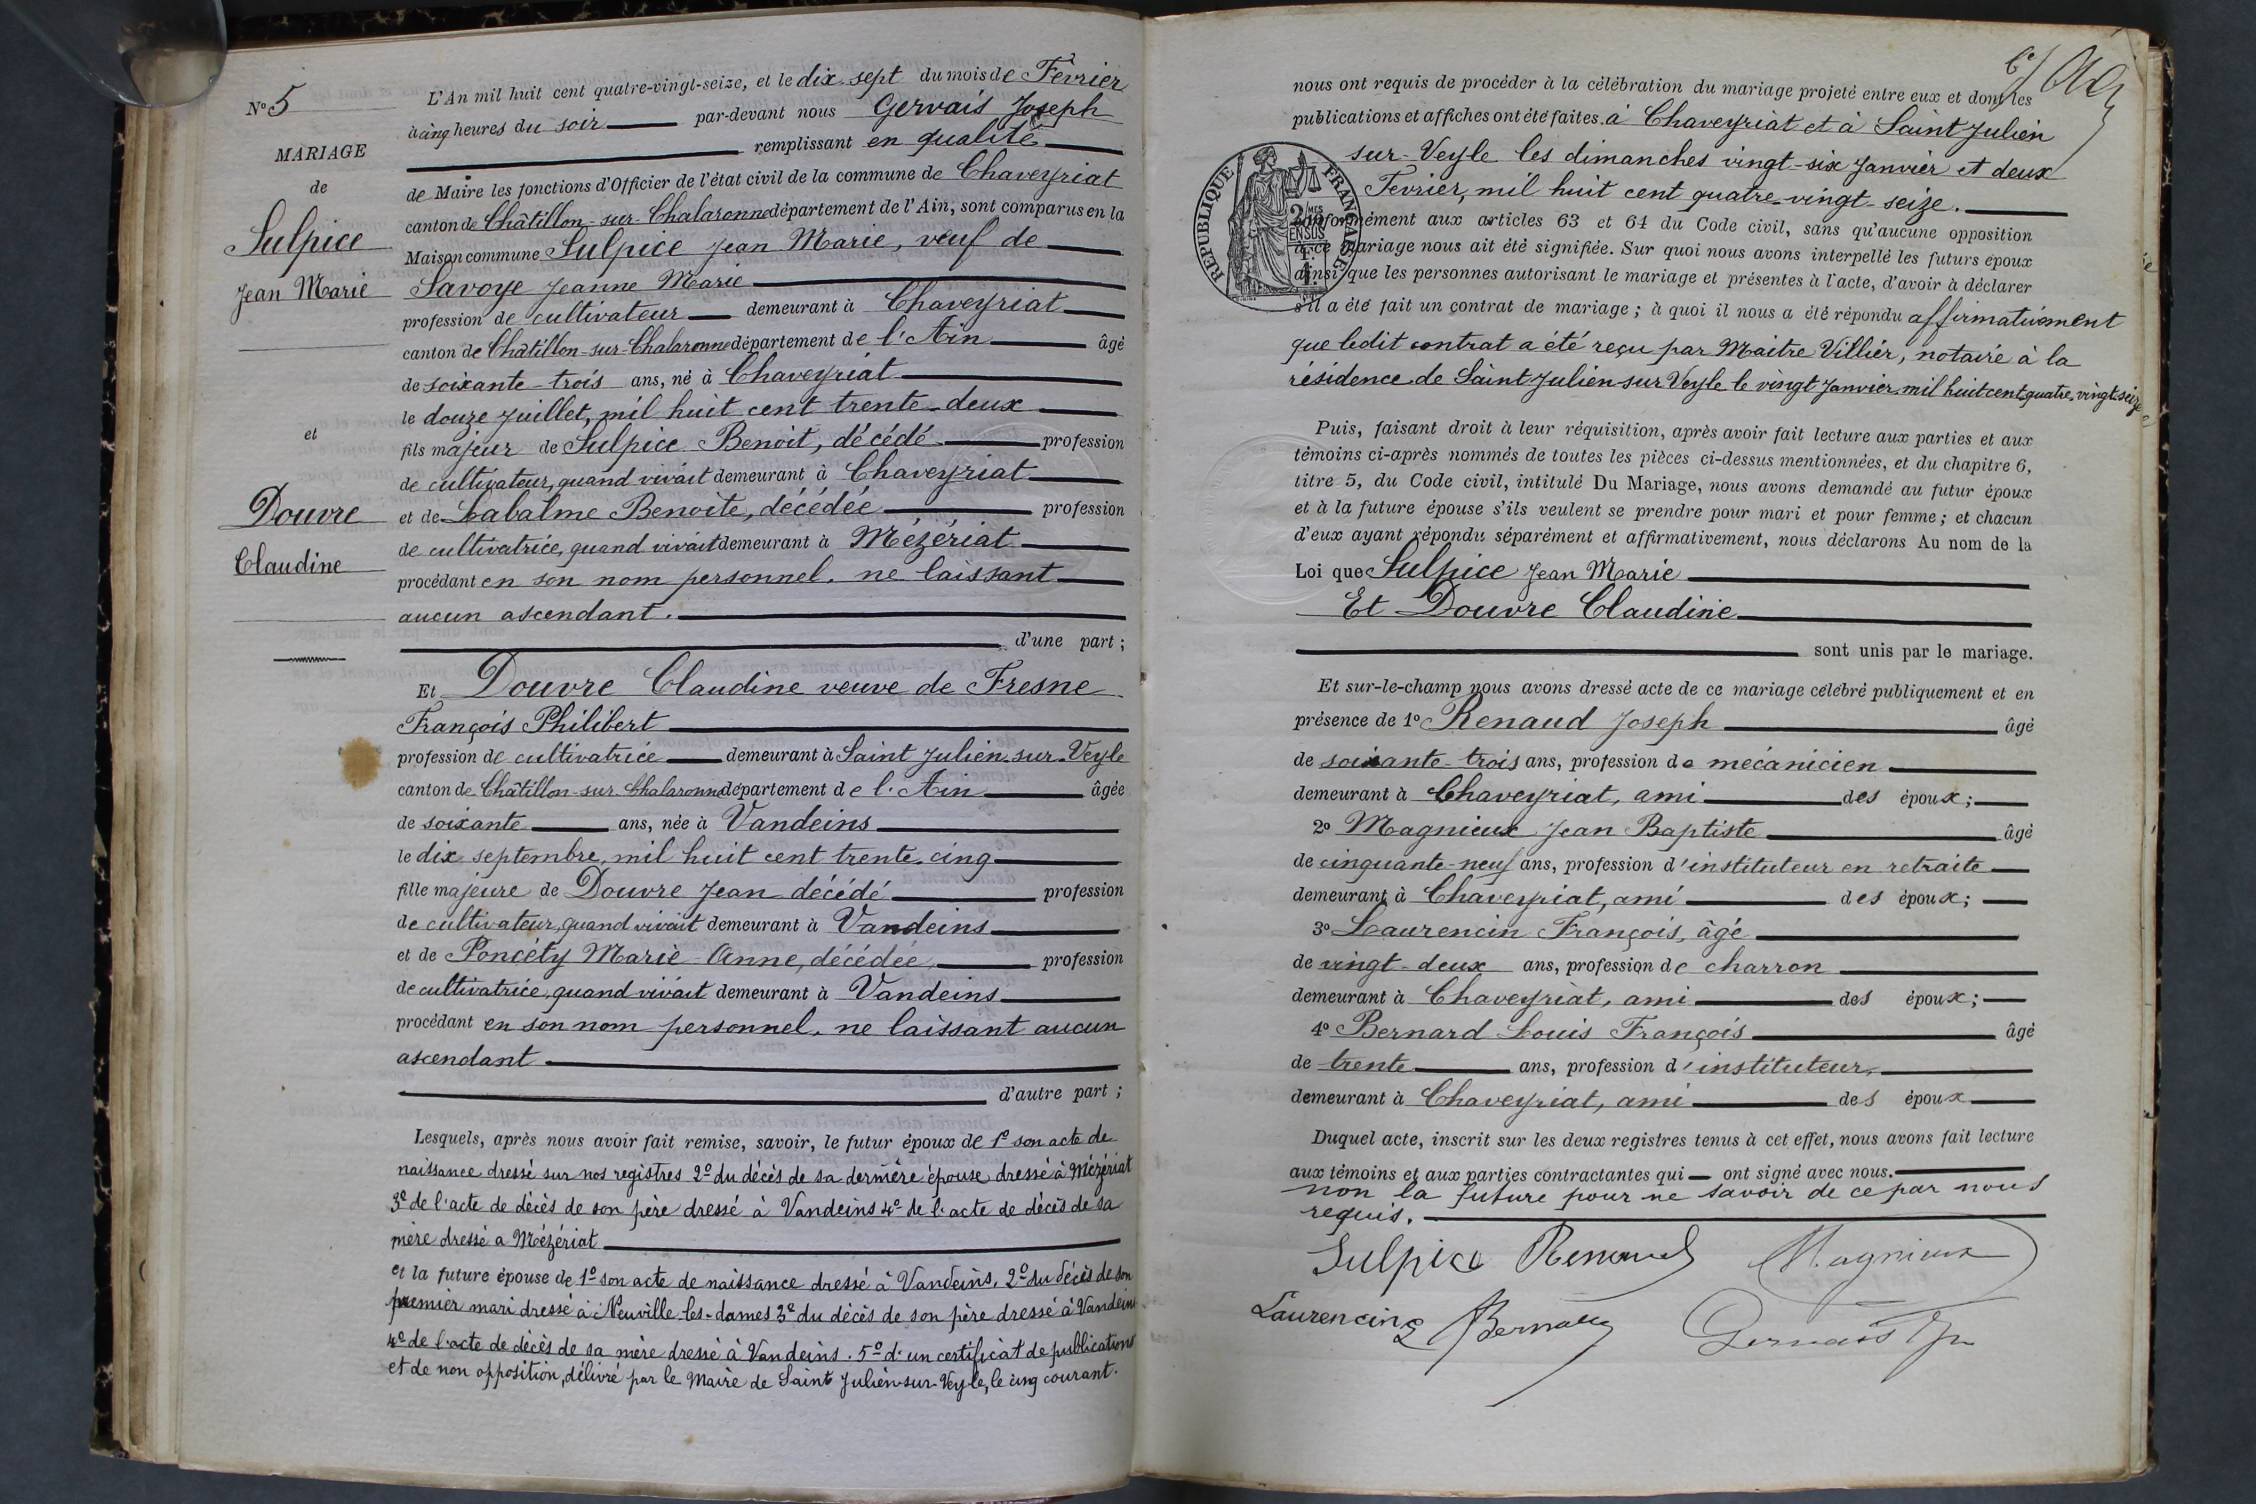 N° 5
MARIAGE
de
Sulpice
Jean Marie
et
Douvre
Claudine
L'An mil huit cent quatre-vingt-seize, et le dix sept du mois de Février
à cinq heures du soir par-devant nous Gervais Joseph
remplissant en qualité
de Maire les fonctions d'Officier de l'état civil de la commune de Chaveyriat
canton de Châtillon-sur-Chalaronne département de l'Ain, sont comparus en la
Maison commune Sulpice Jean Marie, veuf de
Savoye Jeanne Marie
profession de cultivateur demeurant à Chaveyriat
canton de Châtillon-sur-Chalaronne département de l'Ain âgé
de soixante-trois ans, né à Chaveyriat
le douze Juillet, mil huit cent trente-deux
fils majeur de Sulpice Benoit, décédé profession
de cultivateur, quand vivait demeurant à Chaveyriat
et de Labalme Benoîte, décédée profession
de cultivatrice, quand vivait demeurant à Mézériat
procédant en son nom personnel, ne laissant
aucun ascendant.
d'une part ;
Et Douvre Claudine veuve de Fresne
François Philibert
profession de cultivatrice demeurant à Saint Julien-sur-Veyle
canton de Châtillon-sur-Chalaronne département de l'Ain âgée
de soixante ans, née à Vandeins
le dix septembre, mil huit cent trente-cinq
fille majeure de Douvre Jean décédé profession
de cultivateur, quand vivait demeurant à Vandeins
et de Poncéty Marie-Anne, décédée, profession
de cultivatrice, quand vivait demeurant à Vandeins
procédant en son nom personnel, ne laissant aucun
ascendant
d'autre part ;
Lesquels, après nous avoir fait remise, savoir, le futur époux de 1° son acte de
naissance dressé sur nos registres 2° du décès de sa dernière épouse dressé à Mézériat
3° de l'acte de décès de son père dressé à Vandeins 4° de l'acte de décès de sa
mère dressé a Mézériat
et la future épouse de 1° son acte de naissance dressé à Vandeins, 2° du décès de son
premier mari dressé à Neuville-les-dames 3° du décès de son père dressé à Vandeins
4° de l'acte de décès de sa mère dressé à Vandeins. 5° d'un certificat de publications
et de non opposition, délivré par le Maire de Saint Julien-sur-Veyle, le cinq courant.
nous ont requis de procéder à la célébration du mariage projeté entre eux et dont les
publications et affiches ont été faites à Chaveyriat et à Saint Julien
sur-Veyle les dimanches vingt-six Janvier et deux
Fevrier, mil huit cent quatre-vingt-seize.
RÉPUBLIQUE FRANÇAISE
2 MES EN SUS
conformément aux articles 63 et 64 du Code civil, sans qu'aucune opposition
à ce mariage nous ait été signifiée. Sur quoi nous avons interpellé les futurs époux
ainsi que les personnes autorisant le mariage et présentes à l'acte, d'avoir à déclarer
s'il a été fait un contrat de mariage ; à quoi il nous a été répondu affirmativement
que ledit contrat a été reçu par Maitre Villier, notaire à la
résidence de Saint Julien sur Veyle le vingt Janvier mil huit cent quatre-vingt-seize
Puis, faisant droit à leur réquisition, après avoir fait lecture aux parties et aux
témoins ci-après nommés de toutes les pièces ci-dessus mentionnées, et du chapitre 6,
titre 5, du Code civil, intitulé Du Mariage, nous avons demandé au futur époux
et à la future épouse s'ils veulent se prendre pour mari et pour femme ; et chacun
d'eux ayant répondu séparément et affirmativement, nous déclarons Au nom de la
Loi que Sulpice Jean Marie
Et Douvre Claudine
sont unis par le mariage.
Et sur-le-champ nous avons dressé acte de ce mariage célébré publiquement et en
présence de 1° Renaud Joseph âgé
de soixante-trois ans, profession de mécanicien
demeurant à Chaveyriat, ami des époux ;
2° Magnieux Jean Baptiste âgé
de cinquante-neuf ans, profession d'instituteur en retraite
demeurant à Chaveyriat, ami des époux ;
3° Laurencin François, âgé
de vingt-deux ans, profession de charron
demeurant à Chaveyriat, ami des époux ;
4° Bernard Louis François âgé
de trente ans, profession d'instituteur,
demeurant à Chaveyriat, ami des époux
Duquel acte, inscrit sur les deux registres tenus à cet effet, nous avons fait lecture
aux témoins et aux parties contractantes qui ont signé avec nous.
non la future pour ne savoir de ce par nous
requis.
Sulpice Renaud Magnieux
Laurencin L Bernard Gervais Jh